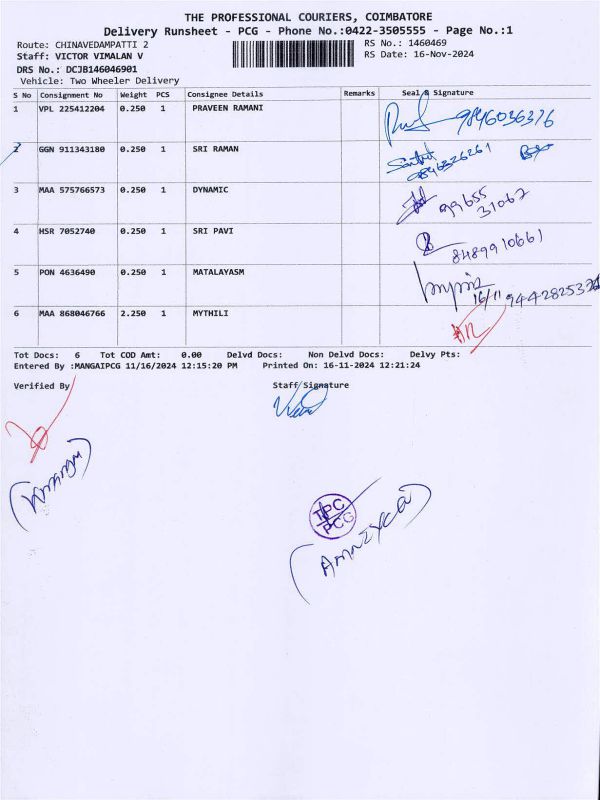 THE PROFESSIONAL COURIERS, COIMBATORE
Delivery Runsheet - PCG - Phone No.:0422-3505555 - Page No.:1
Route: CHINAVEDAMPATTI 2
RS No.: 1460469
Staff: VICTOR VIMALAN V
RS Date: 16-Nov-2024
DRS No.: DCJB146046901
Vehicle: Two Wheeler Delivery
S No Consignment No Weight PCS Consignee Details Remarks Seal & Signature
1 VPL 225412204 0.250 1 PRAVEEN RAMANI 9846036376
2 GGN 911343180 0.250 1 SRI RAMAN 9846326261
3 MAA 575766573 0.250 1 DYNAMIC 99655
31067
4 HSR 7052740 0.250 1 SRI PAVI 8489910661
5 PON 4636490 0.250 1 MATALAYASM
16/11
6 MAA 868046766 2.250 1 MYTHILI
Tot Docs: 6 Tot COD Amt: 0.00 Delvd Docs: Non Delvd Docs: Delvy Pts:
Entered By :MANGAIPCG 11/16/2024 12:15:20 PM Printed On: 16-11-2024 12:21:24
Verified By Staff Signature
TPC
PCG